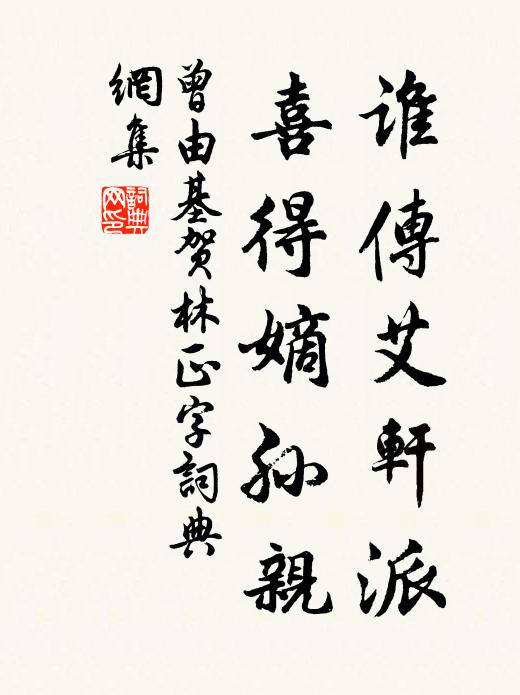 誰傳艾軒派
喜得嫡孫親
曾由基賀林正字詞典
網集
詞典
网印